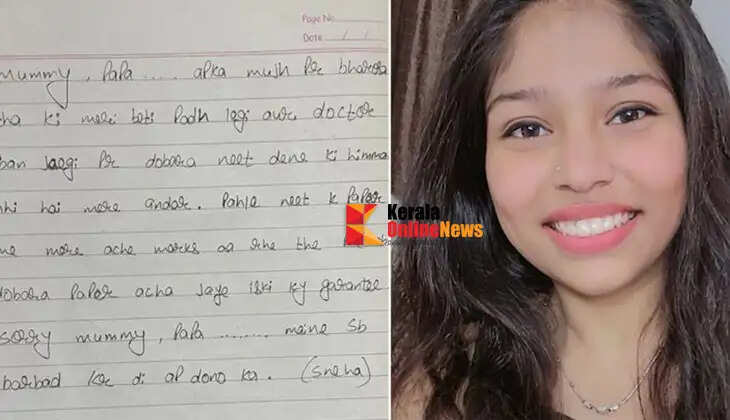 Page No
Date / /
Mummy, Papa ..... apka mujh Per bharosa
tha ki meri beti Padh legi aur doctor
ban jaegi Per dobara neet dene ki himma
nhi hai mere andar. Pahle neet k Papar
me mere ache marks aa rhe the
dobara Papar acha jaye iski ky garantee
sorry mummy, Papa ......... meine sb
barbad ker di ap dono ka. (Sneha)
Kerala
OnlineNews